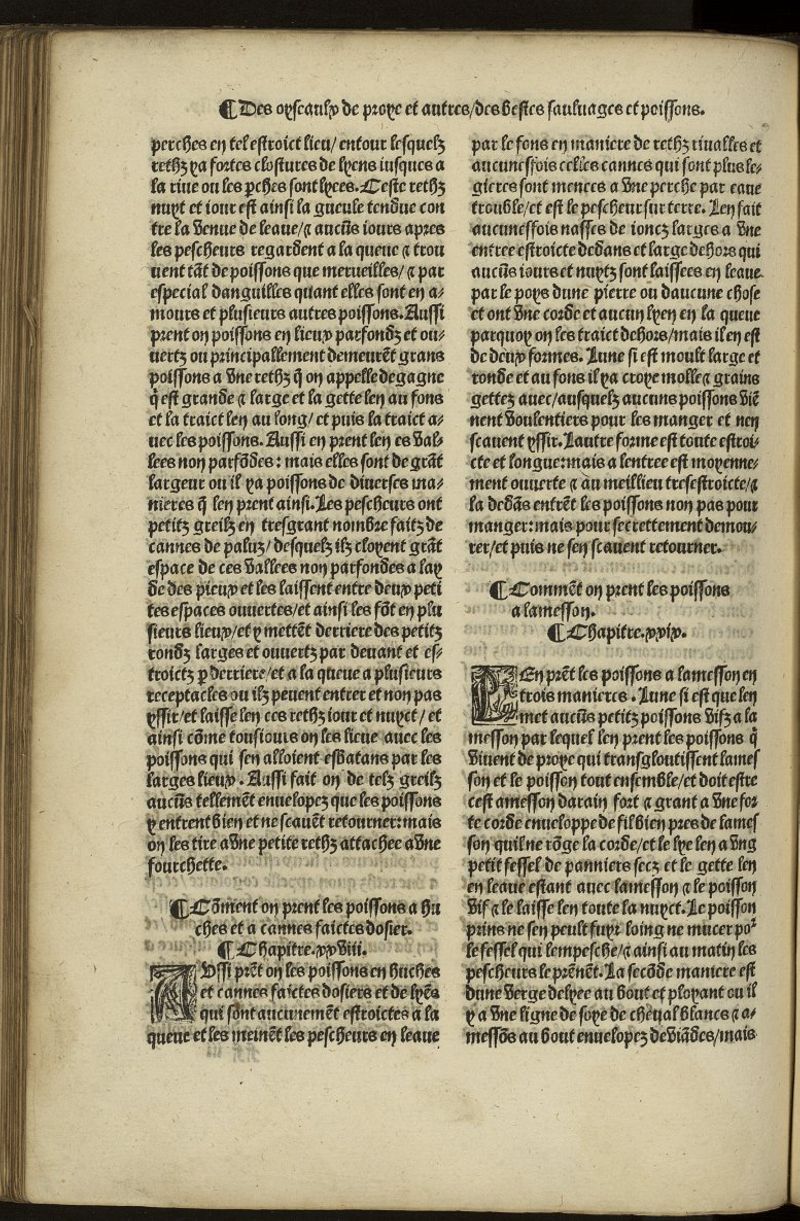 ¶ Des oyseaulx de proye et autres/des bestes sauluages et poissons.
perches en tel estroict lieu/ entour lesquelz
rethz ya fortes clostures de lyens iusques a
la riue ou les pches sont lyees. Ceste rethz
nuyt et iour est ainsi la gueule tendue con
tre la venue de leaue/⁊ aucũs iours apres
les pescheurs regardent a la queue ⁊ trou
uent tãt de poissons que merueilles/ ⁊ par
especial danguilles quant elles sont en a⸗
mours et plusieurs autres poissons. Aussi
prent on poissons en lieux parfondz et ou⸗
uertz ou principallement demeurẽt grans
poissons a vne rethz q̃ on appelle degagne
q̃ est grande ⁊ large et la gette len au fons
et la traict len au long/ et puis la traict a⸗
uec les poissons. Aussi en prent len es val⸗
lees non parfõdes: mais elles sont de grãt
largeur ou il ya poissons de diuerses ma⸗
nieres q̃ len prent ainsi. Les pescheurs ont
petitz greilz en tresgrant nombre faitz de
cannes de paluz/ desquelz ilz cloyent grãt
espace de ces vallees non parfondes a lay
de des pieux et les laissent entre deux peti
tes espaces ouuertes/et ainsi les fõt en plu
sieurs lieux/et y mettẽt derriere des petitz
rondz larges et ouuertz par deuant et es⸗
troictz p derriere/et a la queue a plusieurs
receptacles ou ilz peuent entrer et non pas
yssir/et laisse len ces rethz iour et nuyct/ et
ainsi cõme tousiours on les lieue auec les
poissons qui sen alloient esbatans par les
larges lieux. Aussi fait on de telz greilz
aucũs tellemẽt enuelopez que les poissons
y entrent bien et ne scauẽt retourner: mais
on les tire a vne petite rethz attachee a vne
fourchette.
¶ Cõment on prent les poissons a hu
ches et a cannes faictes dosier.
¶ Chapitre. xxviii.
AVssi prẽt on les poissons en huches
et cannes faictes dosiers et de lyẽs
qui sõnt aucunemẽt estroictes a la
queue et les meinẽt les pescheurs en leaue
par le fons en maniere de rethz riualles et
aucunessois celles cannes qui sont plus le⸗
gieres sont menees a vne perche par eaue
trouble/et est le pescheur sur terre. Len fait
aucunessois nasses de ioncz larges a vne
entree estroicte dedans et large dehors qui
aucũs iours et nuytz sont laissees en leaue
par le poys dune pierre ou daucune chose
et ont vne corde et aucun lyen en la queue
parquoy on les traict dehors/mais il en est
de deux formes. Lune si est moult large et
ronde et au fons il ya croye molle ⁊ grains
gettez auec/ausquelz aucuns poissons viẽ
nent voulentiers pour les manger et nen
scauent yssir. Lautre forme est toute estroi⸗
cte et longue: mais a lentree est moyenne⸗
ment ouuerte ⁊ au meillieu tresestroicte/⁊
la dedãs entrẽt les poissons non pas pour
manger: mais pour secrettement demou⸗
rer/et puis ne sen scauent retourner.
¶ Commẽt on prent les poissons
a lamesson.
¶ Chapitre. xxix.
LEn prẽt les poissons a lamesson en
trois manieres. Lune si est que len
met aucũs petitz poissons vifz a la
messon par lequel len prent les poissons q̃
viuent de proye qui transgloutissent lames
son et le poisson tout ensemble/et doit estre
cest amesson darain fort ⁊ grant a vne for
te corde enueloppe de fil bien pres de lames
son quil ne rõge la corde/et le lye len a vng
petit fessel de panniers secz et le gette len
en leaue estant auec lamesson ⁊ le poisson
vif ⁊ le laisse len toute la nuyct. Le poisson
prins ne sen peult fuyr loing ne mucer poꝛ
le fessel qui lempesche/⁊ ainsi au matin les
pescheurs le prẽnẽt. La secõde maniere est
dune verge delyee au bout et ployant ou il
y a vne ligne de soye de cheual blancs ⁊ a⸗
messõs au bout enuelopez de viãdes/mais